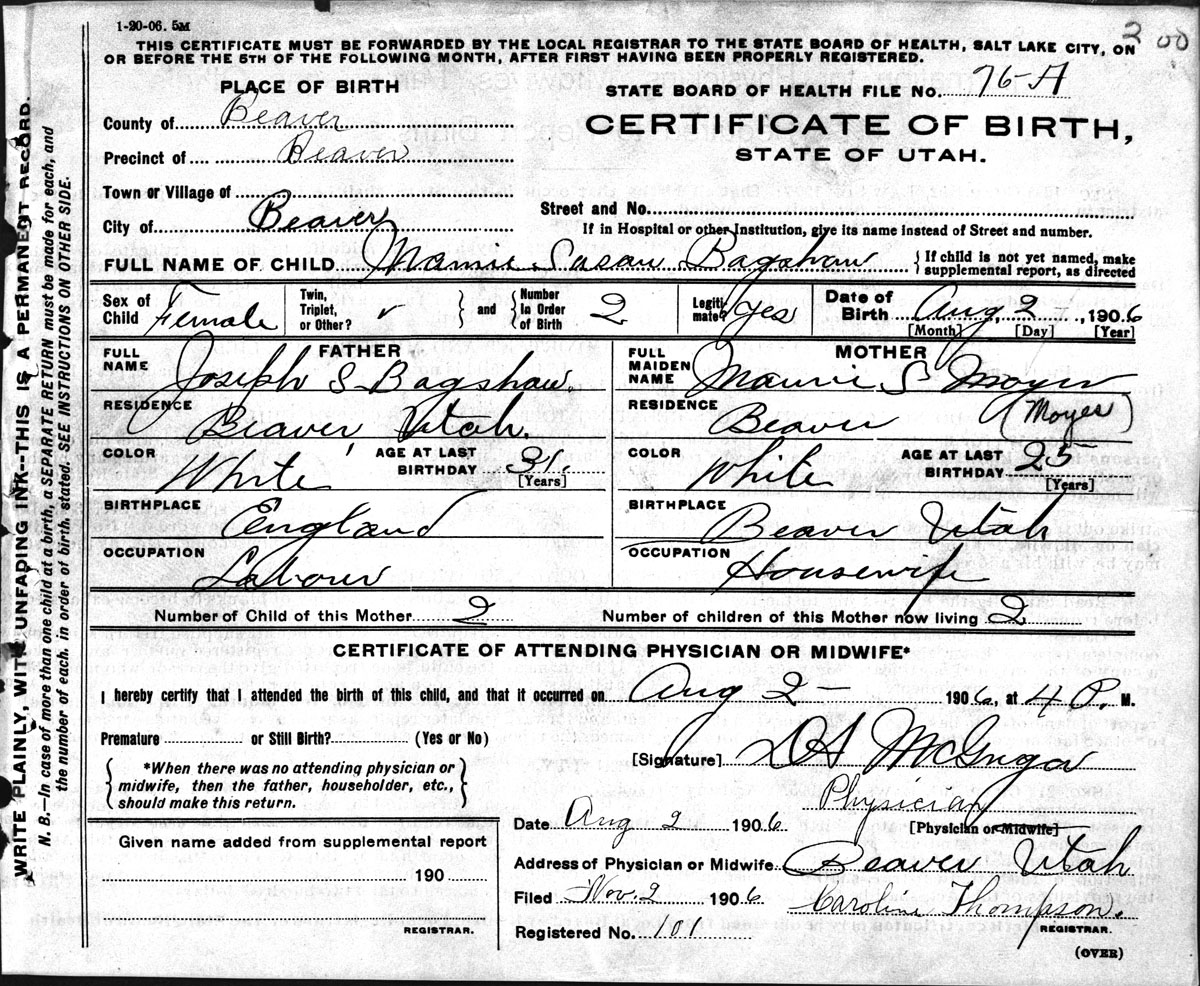 1-20-06. 5M
2 00
THIS CERTIFICATE MUST BE FORWARDED BY THE LOCAL REGISTRAR TO THE STATE BOARD OF HEALTH, SALT LAKE CITY, ON
OR BEFORE THE 5TH OF THE FOLLOWING MONTH, AFTER FIRST HAVING BEEN PROPERLY REGISTERED.
PLACE OF BIRTH
STATE BOARD OF HEALTH FILE No. 76-A
County of Beaver
CERTIFICATE OF BIRTH,
Precinct of Beaver
STATE OF UTAH.
Town or Village of
City of Beaver
Street and No.
If in Hospital or other Institution, give its name instead of Street and number.
FULL NAME OF CHILD Mamie Susan Bagshaw
{ If child is not yet named, make
supplemental report, as directed
Sex of Child Female
Twin, Triplet, or Other? ✓ } and { Number In Order of Birth 2
Legitimate? Yes
Date of Birth Aug. 2, 1906
[Month] [Day] [Year]
FATHER
FULL NAME Joseph S. Bagshaw.
RESIDENCE Beaver, Utah.
COLOR White
AGE AT LAST BIRTHDAY 31.
[Years]
BIRTHPLACE England
OCCUPATION Labour
MOTHER
FULL MAIDEN NAME Mamie S Moyer
(Moyes)
RESIDENCE Beaver
COLOR White
AGE AT LAST BIRTHDAY 25
[Years]
BIRTHPLACE Beaver Utah
OCCUPATION Housewife
Number of Child of this Mother 2
Number of children of this Mother now living 2
CERTIFICATE OF ATTENDING PHYSICIAN OR MIDWIFE*
I hereby certify that I attended the birth of this child, and that it occurred on Aug 2- 1906, at 4 P. M.
Premature or Still Birth? (Yes or No)
{ *When there was no attending physician or
midwife, then the father, householder, etc.,
should make this return. }
[Signature] McGregor
Physician
[Physician or Midwife]
Date Aug 2 1906.
Address of Physician or Midwife Beaver Utah
Filed Nov. 2 1906
Caroline Thompson.
REGISTRAR.
Registered No. 101
(OVER)
Given name added from supplemental report
190
REGISTRAR.
WRITE PLAINLY, WITH UNFADING INK--THIS IS A PERMANENT RECORD.
N. B.—In case of more than one child at a birth, a SEPARATE RETURN must be made for each, and
the number of each. in order of birth, stated. SEE INSTRUCTIONS ON OTHER SIDE.